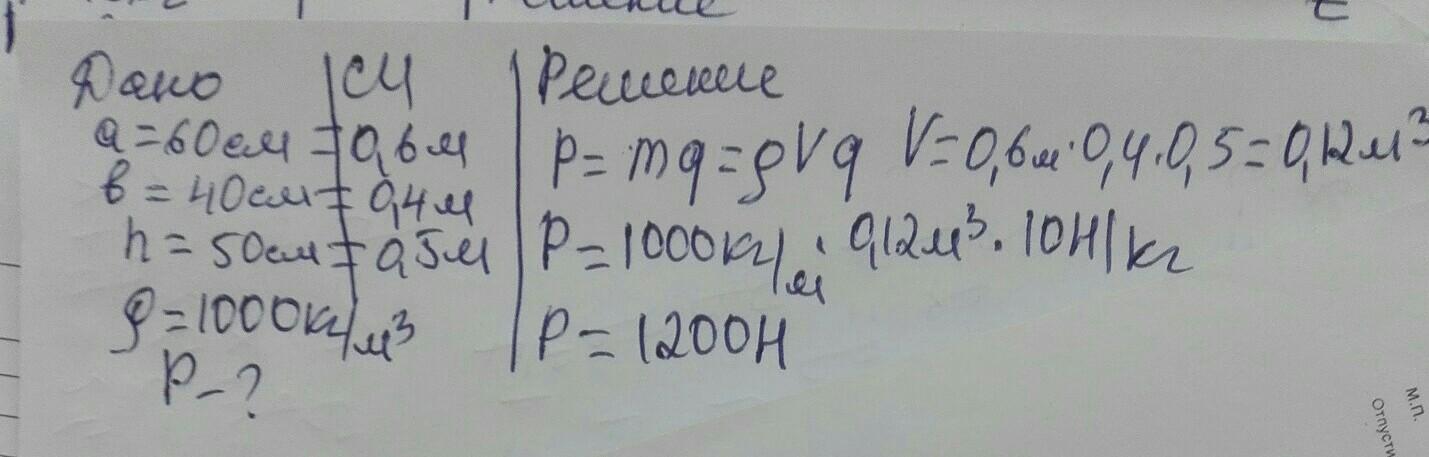 Дано | СИ | Решение
a = 60см = 0,6м
в = 40см = 0,4м
h = 50см = 0,5м
ρ = 1000кг/м³
P - ?
P = mg = ρVg V = 0,6м · 0,4 · 0,5 = 0,12м³
P = 1000кг/м · 0,12м³ · 10Н/кг
P = 1200Н
М.П.
Отпусти